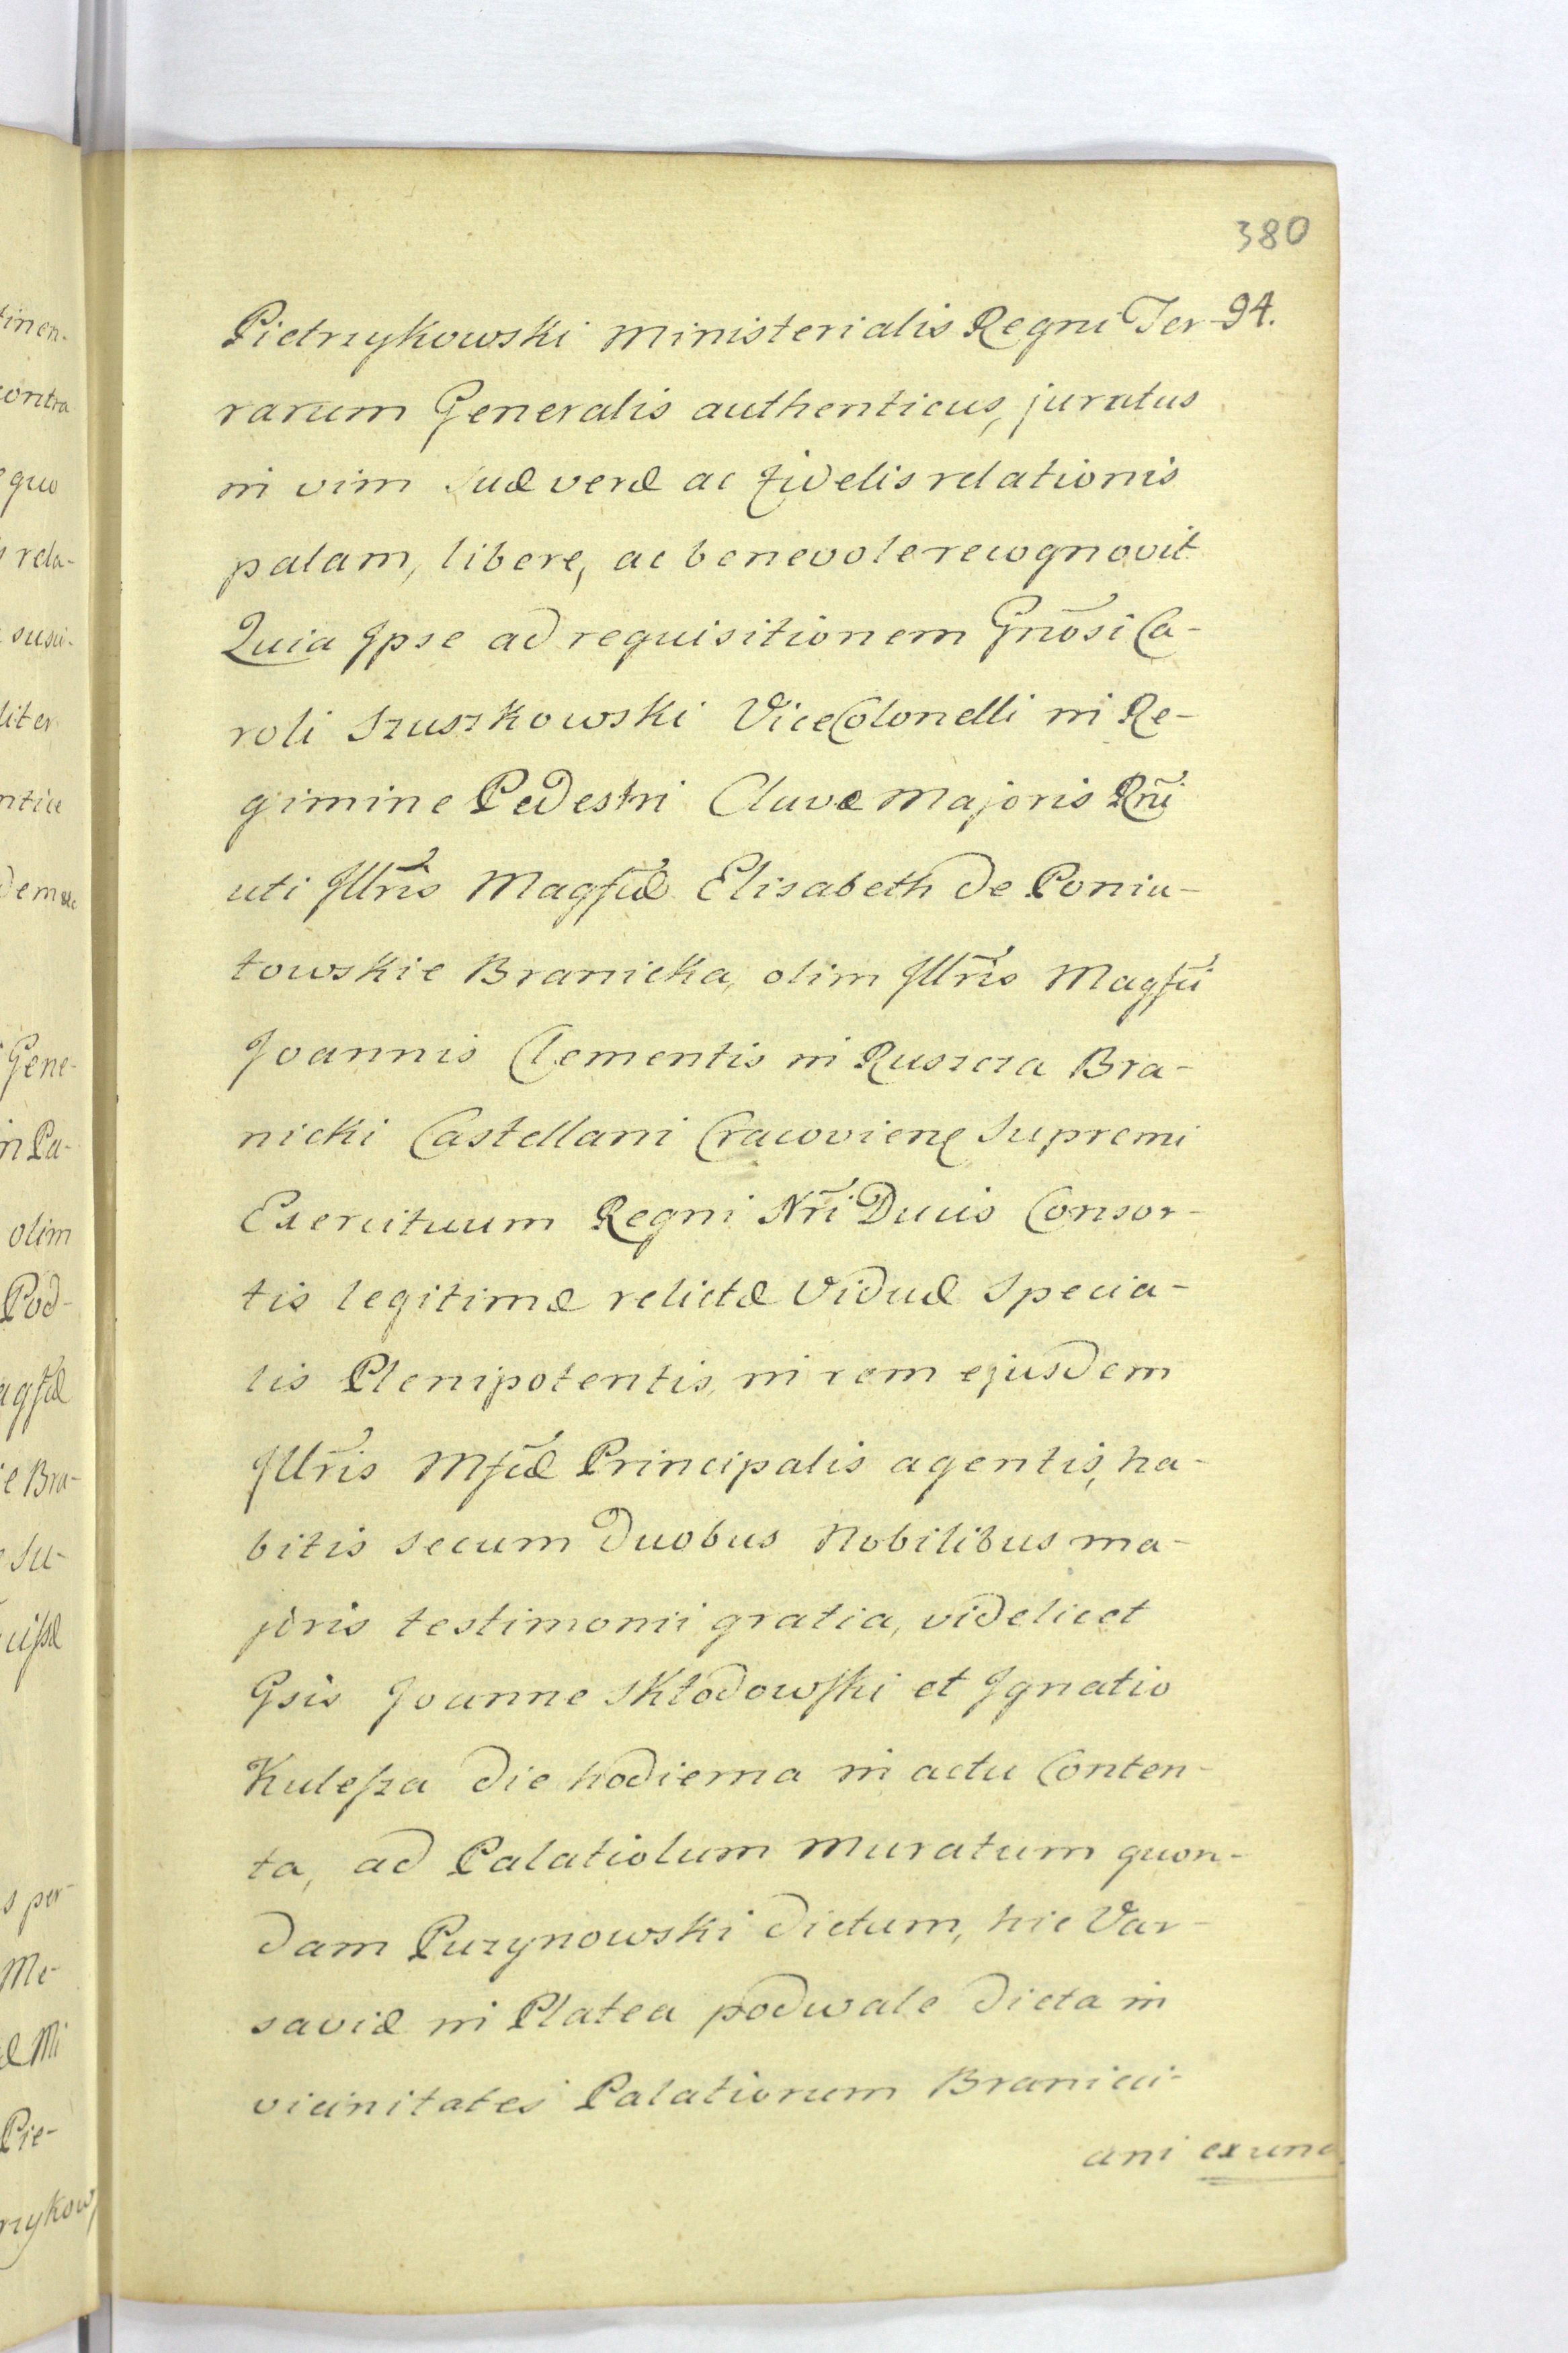 380
Pietrzykowski Ministerialis Regni Ter- 94.
rarum Generalis authenticus, juratus
in vim suæ veræ ac fidelis relationis
palam, libere, ac benevole recognovit
Quia Ipse ad requisitionem Gnõsi Ca-
roli Szuszkowski ViceColonelli in Re-
gimine Pedestri Clavæ Majoris Rñi
uti Jllr̃is Magfcæ Elisabeth de Ponia-
towskie Branicka, olim Jllr̃is Magfci
Joannis Clementis in Ruszcza Bra-
nicki Castellani Cracovien̄ Supremi
Exercituum Regni Nr̃i Ducis Consor-
tis legitimæ relictæ Viduæ Specia-
lis Plenipotentis, in rem ejusdem
Jllr̃is Mfcæ Principalis agentis, ha-
bitis secum duobus Nobilibus ma-
joris testimonii gratia, videlicet
Gsis Joanne Skłodowski et Ignatio
Kulesza die hodierna in actu Conten-
ta, ad Palatiolum Muratum quon-
dam Puzynowski dictum, hic Var-
saviæ in Platea podwale dicta in
vicinitatei Palatiorum Branici-
ani ex una
tinen-
contra
quo
rela-
liter
Gene-
in Pa-
olim
Pod-
e Bra-
Su-
s per-
Me-
Pie-